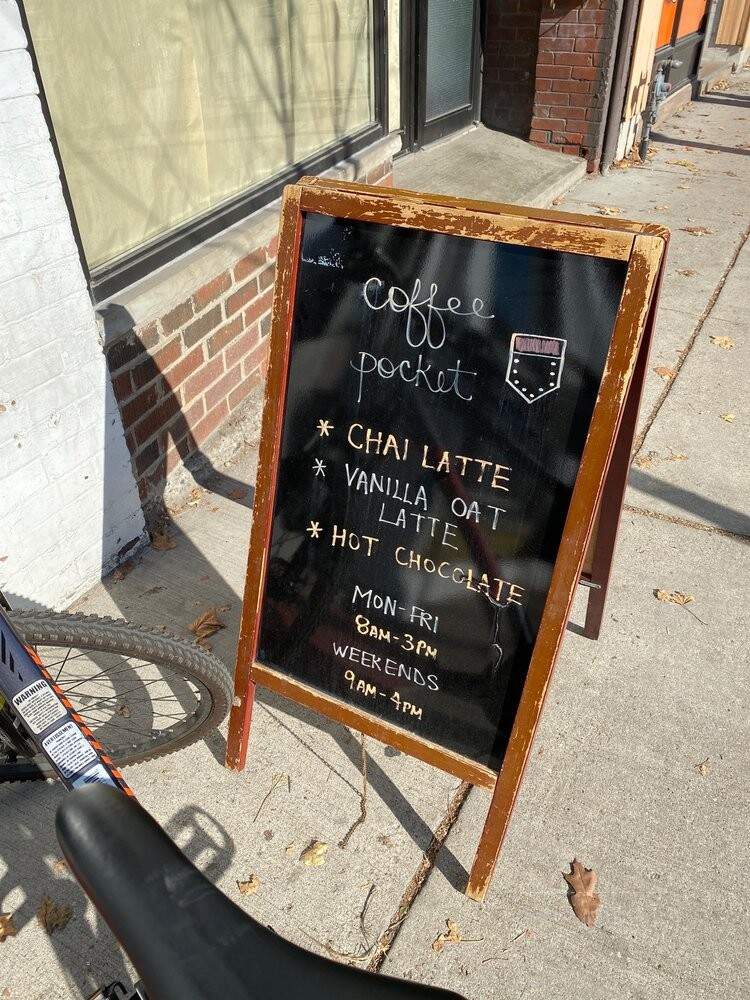 coffee
pocket
* CHAI LATTE
* VANILLA OAT
LATTE
* HOT CHOCOLATE
MON-FRI
8AM-3PM
WEEKENDS
9AM-4PM
WARNING
AVERTISSEMENT